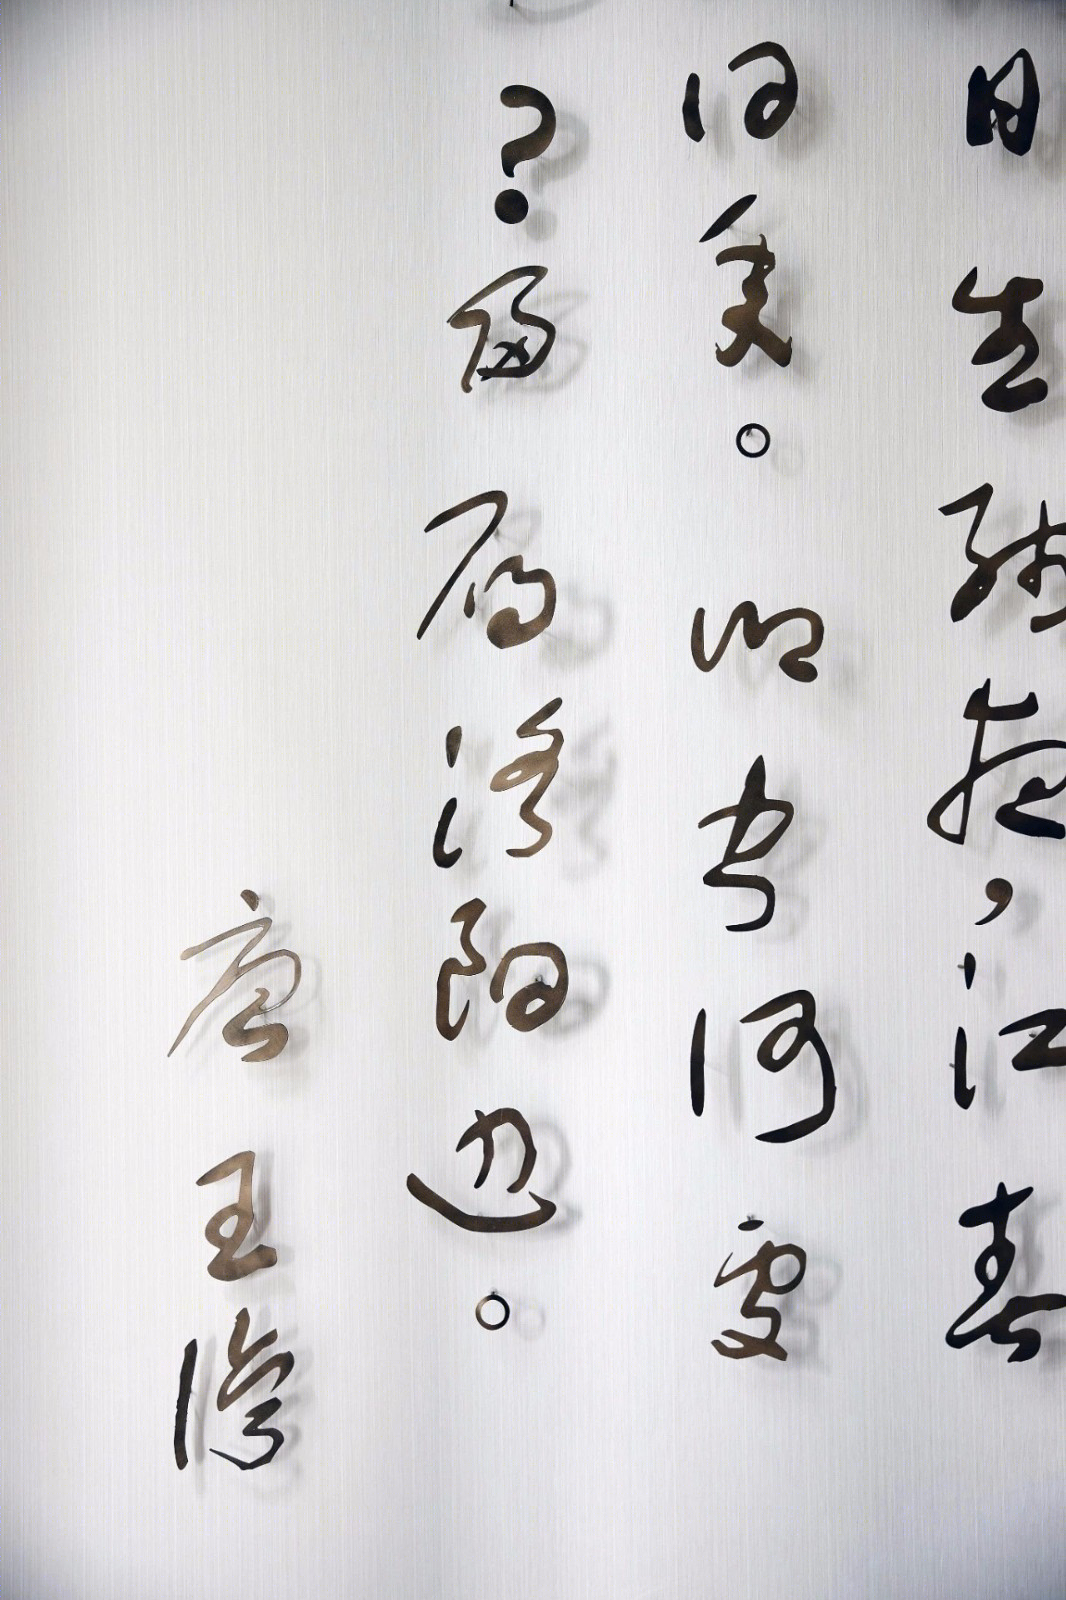 日生残夜，江春
旧年。乡书何处
？归雁洛阳边。
唐 王湾